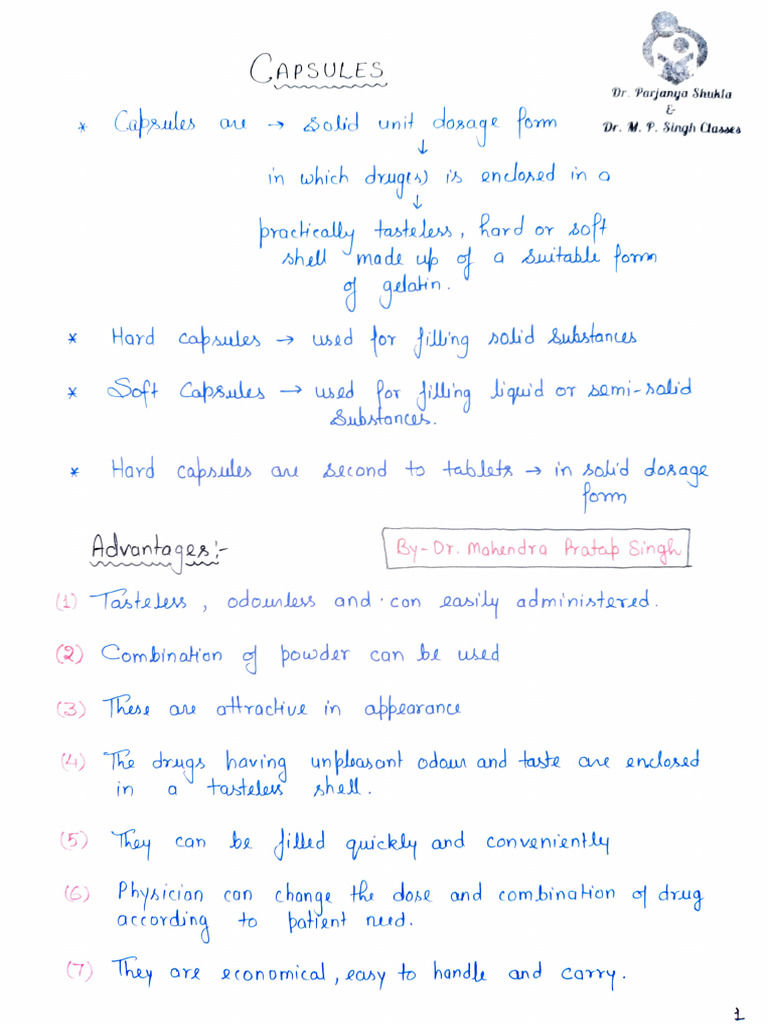 CAPSULES
Dr. Parjanya Shukla
&
Dr. M. P. Singh Classes
* Capsules are → solid unit dosage form
↓
in which drug(s) is enclosed in a
↓
practically tasteless, hard or soft
shell made up of a suitable form
of gelatin.
* Hard capsules → used for filling solid substances
* Soft Capsules → used for filling liquid or semi-solid
substances.
* Hard capsules are second to tablets → in solid dosage
form
Advantages:-
By-Dr. Mahendra Pratap Singh
(1) Tasteless, odourless and can easily administered.
(2) Combination of powder can be used
(3) These are attractive in appearance
(4) The drugs having unpleasant odour and taste are enclosed
in a tasteless shell.
(5) They can be filled quickly and conveniently
(6) Physician can change the dose and combination of drug
according to patient need.
(7) They are economical, easy to handle and carry.
1